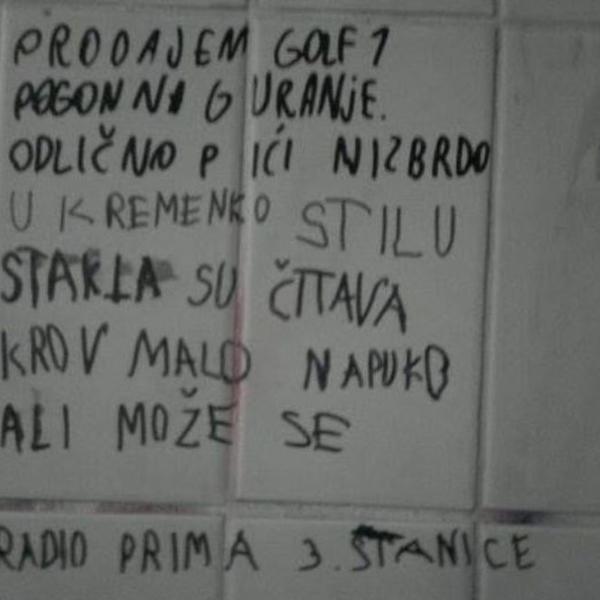 PRODAJEM GOLF 1
POGON NA GURANJE.
ODLIČNO P IĆI NIZBRDO
U KREMENKO STILU
STAKLA SU ČITAVA
KROV MALO NAPUKO
ALI MOŽE SE
RADIO PRIMA 3. STANICE